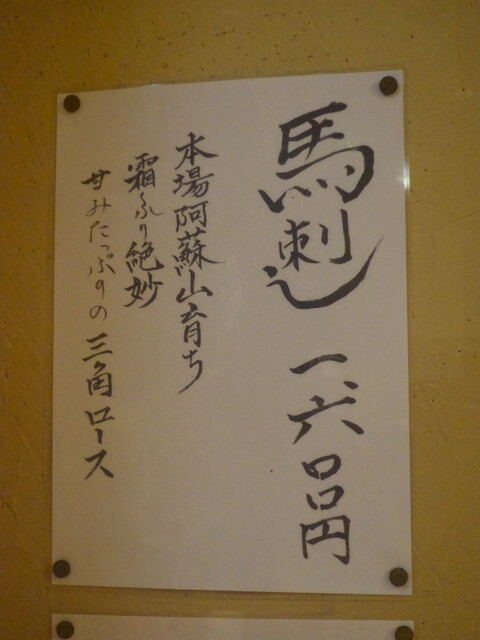 馬刺し 一六〇〇円
本場阿蘇山育ち
霜ふり絶妙
甘みたっぷりの三角ロース